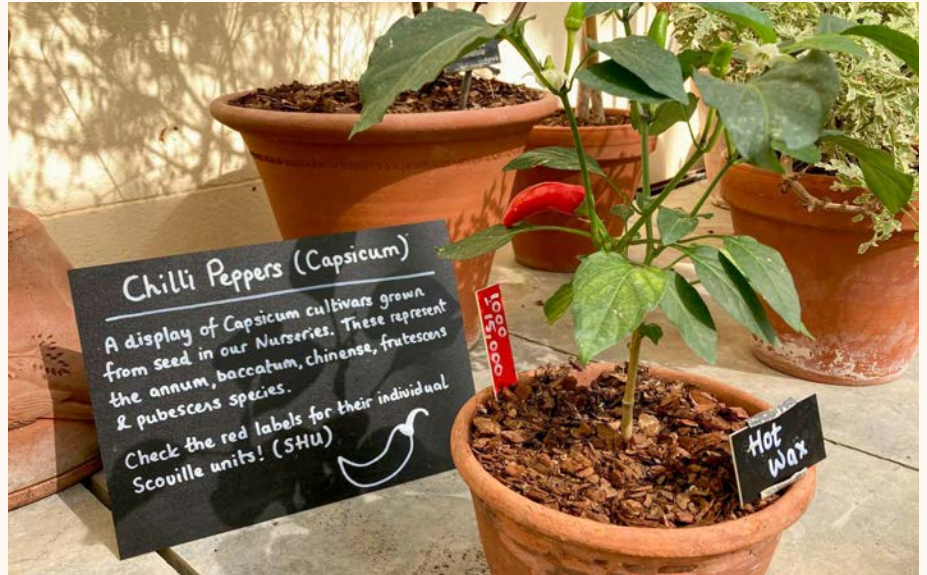 Chilli Peppers (Capsicum)
A display of Capsicum cultivars grown
from seed in our Nurseries. These represent
the annum, baccatum, chinense, frutescens
& pubescens species.
Check the red labels for their individual
Scoville units! (SHU)
Hot
Wax